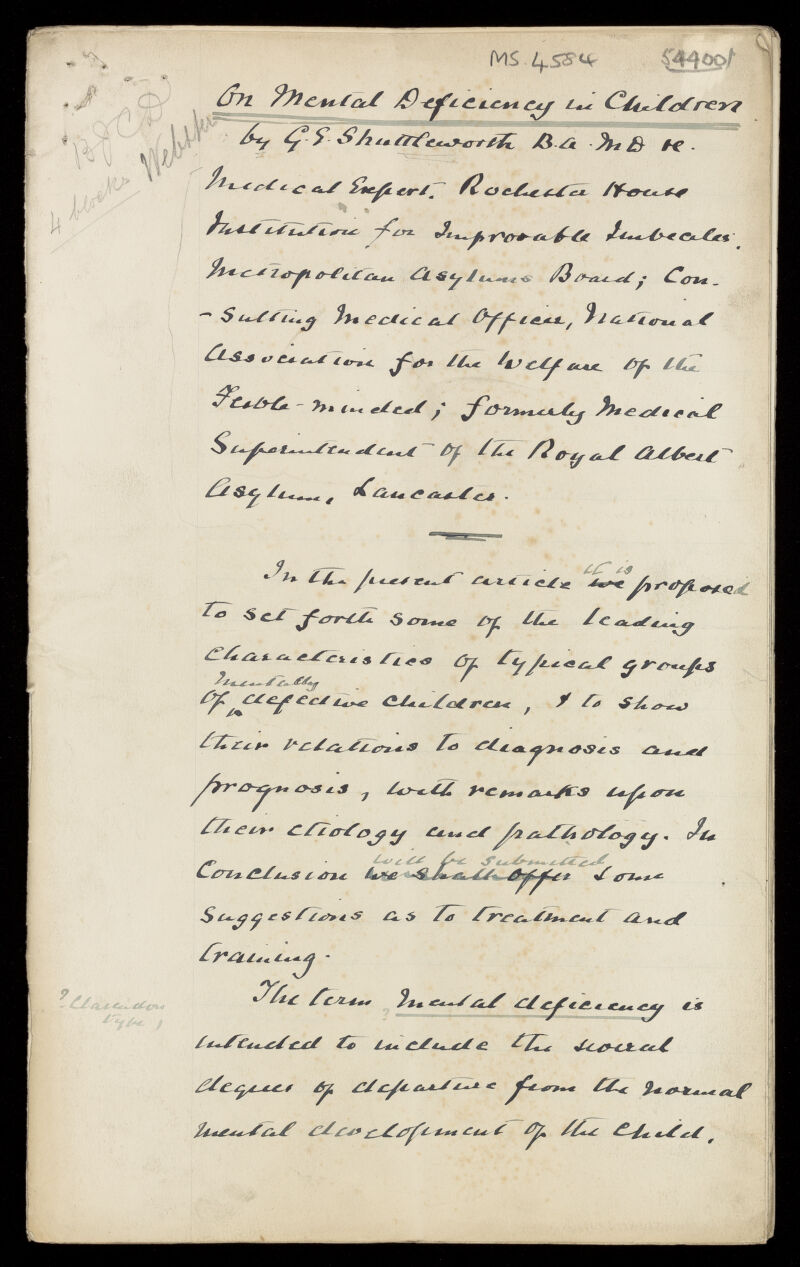 MS. 4584
54400
BJCD
4 blocks Webster
On Mental Deficiency in Children
by G.E. Shuttleworth B.A. M.D &c.
Medical Expert. Rochester House
Institution for Improvable Imbeciles.
Metropolitan Asylums Board; Con-
-sulting Medical Officer, National
Association for the Welfare of the
Feeble-minded; formerly Medical
Superintendent of the Royal Albert
Asylum, Lancaster.
it is
In the present article we proposed
to set forth some of the leading
characteristics of typical groups
mentally
of defective children, & to show
their relations to diagnosis and
prognosis, with remarks upon
their etiology and pathology. In
will be submitted
Conclusion we shall offer some
suggestions as to treatment and
training.
? Clarendon
type
The term mental deficiency is
intended to include the several
degrees of departure from the normal
mental development of the child,